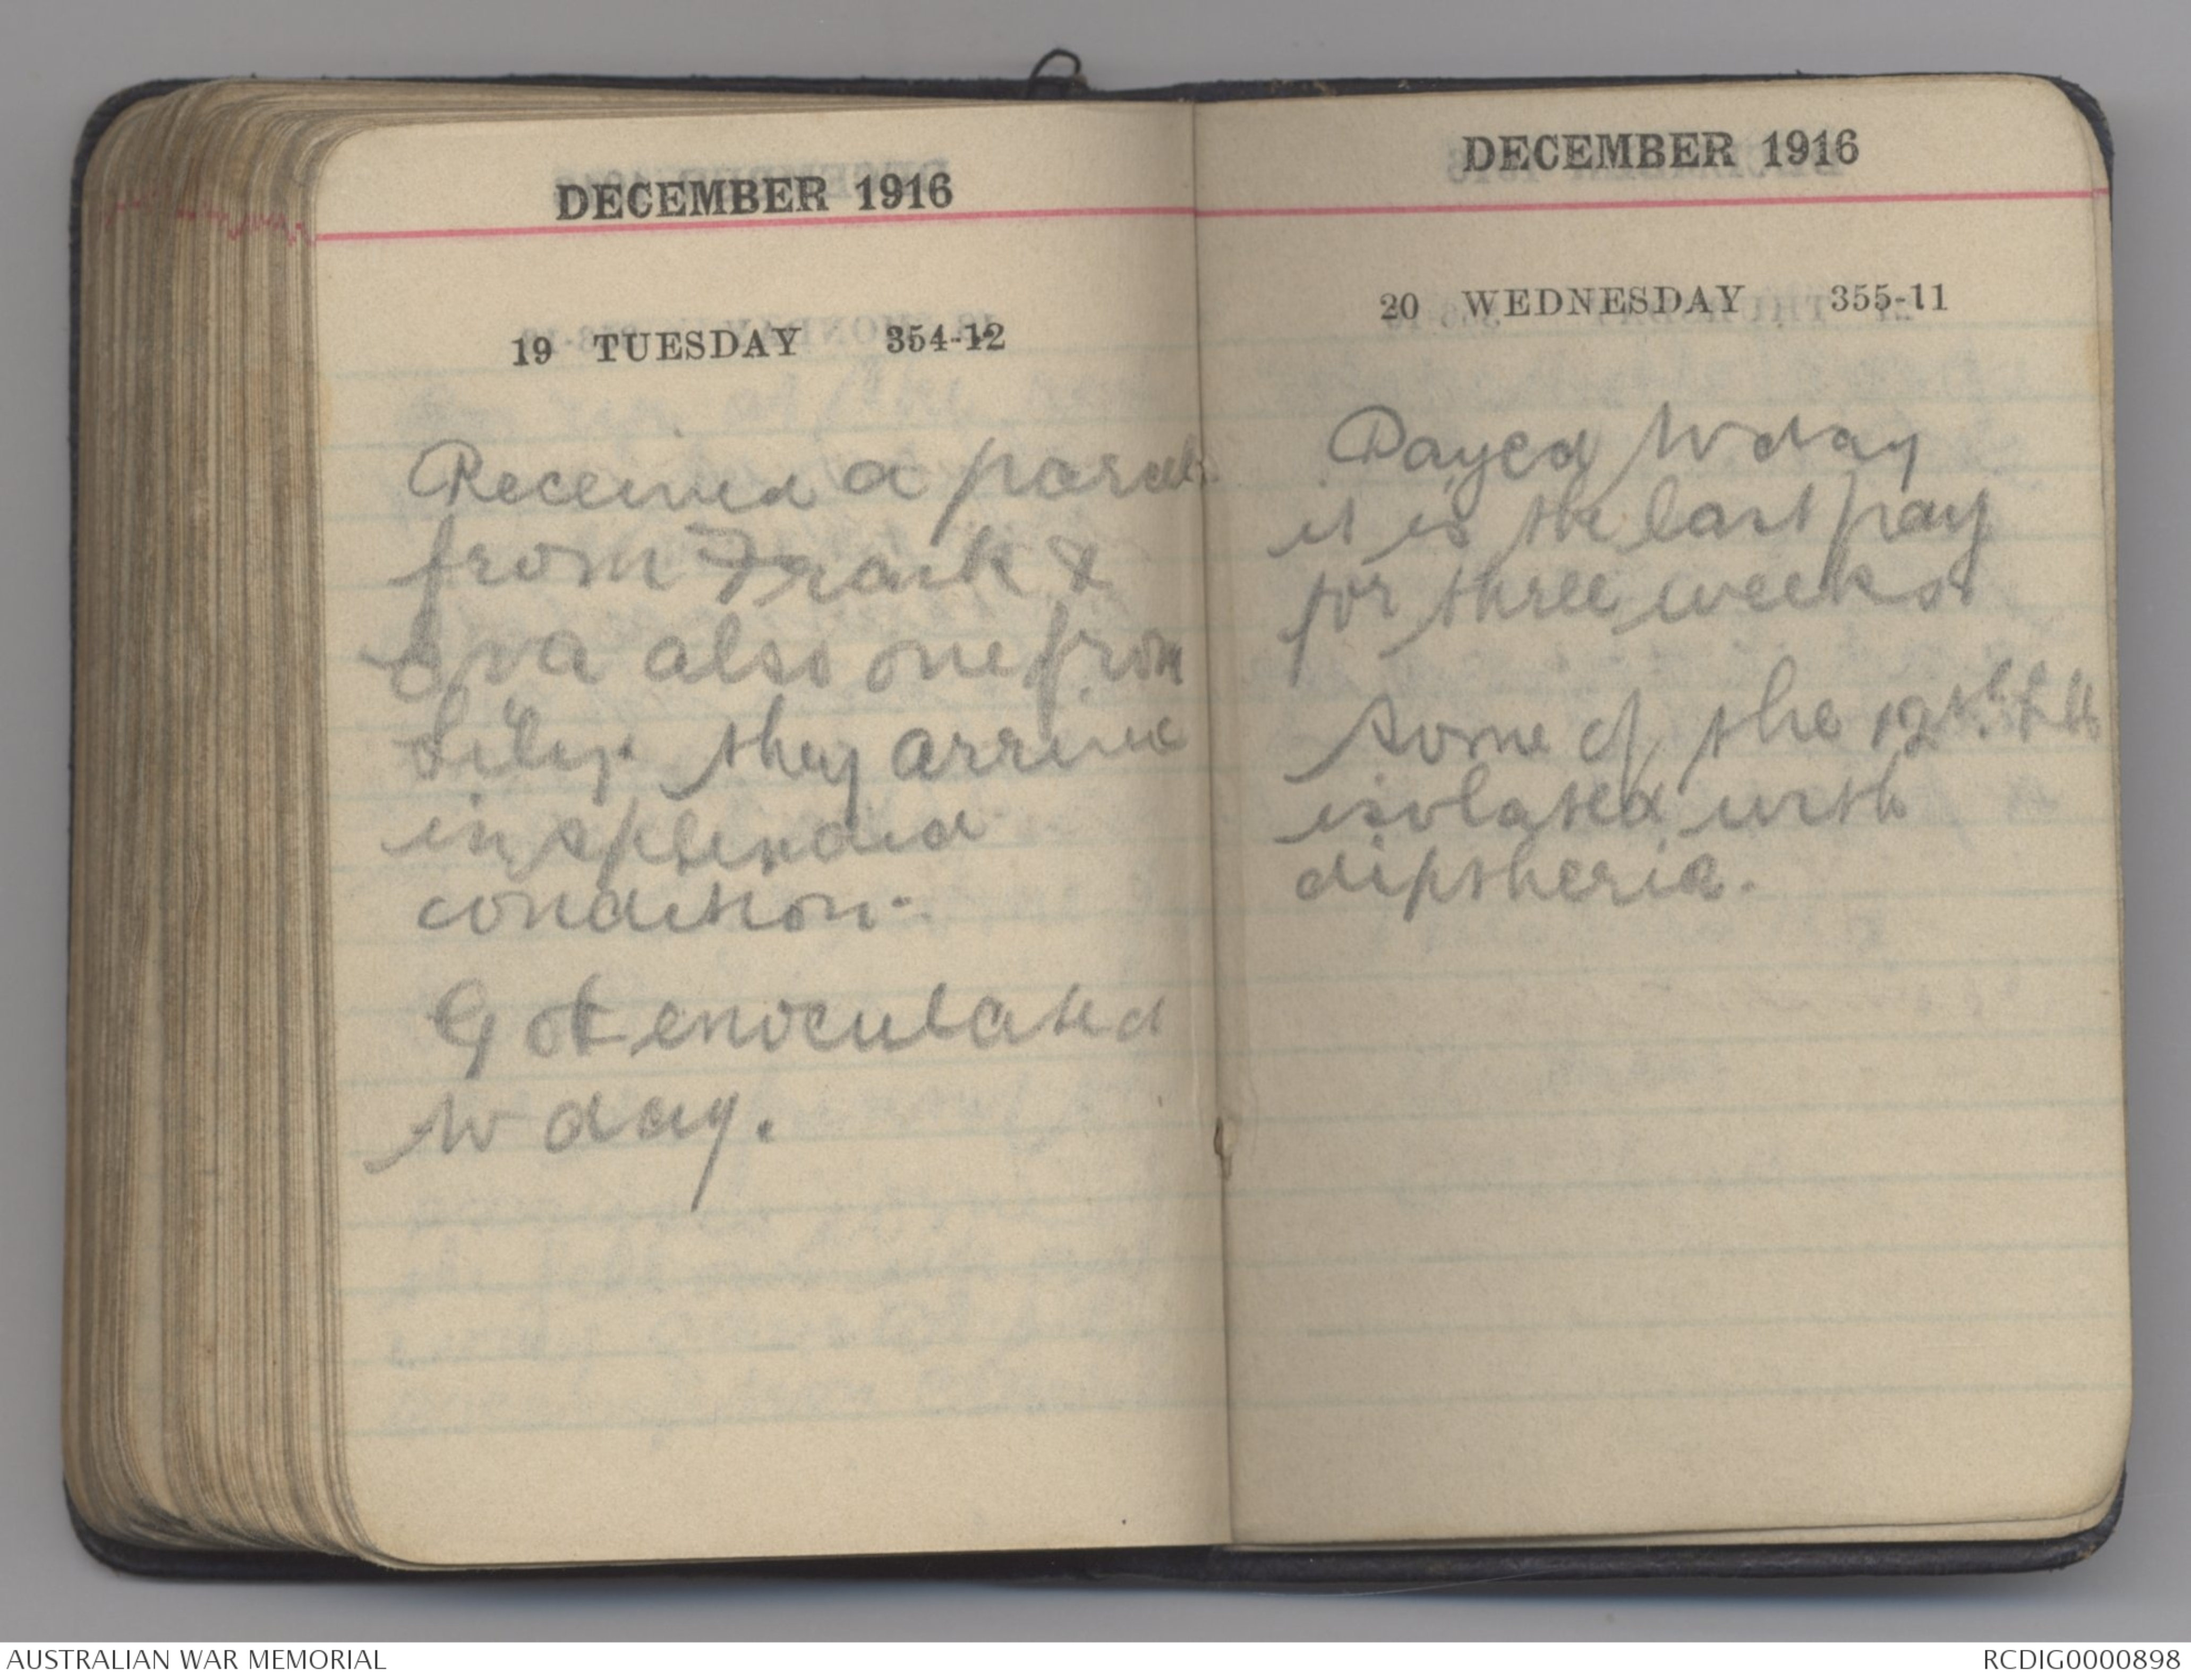 DECEMBER 1916
19 TUESDAY 354-12
Received a parcel
from Frank &
Eva also one from
Lily. they arrive
in splendid
condition.
Got enoculated
to day.
DECEMBER 1916
20 WEDNESDAY 355-11
Payed to day
it is the last pay
for three weeks.
Some of the 12th
isolated with
diptheria.
AUSTRALIAN WAR MEMORIAL
RCDIG0000898